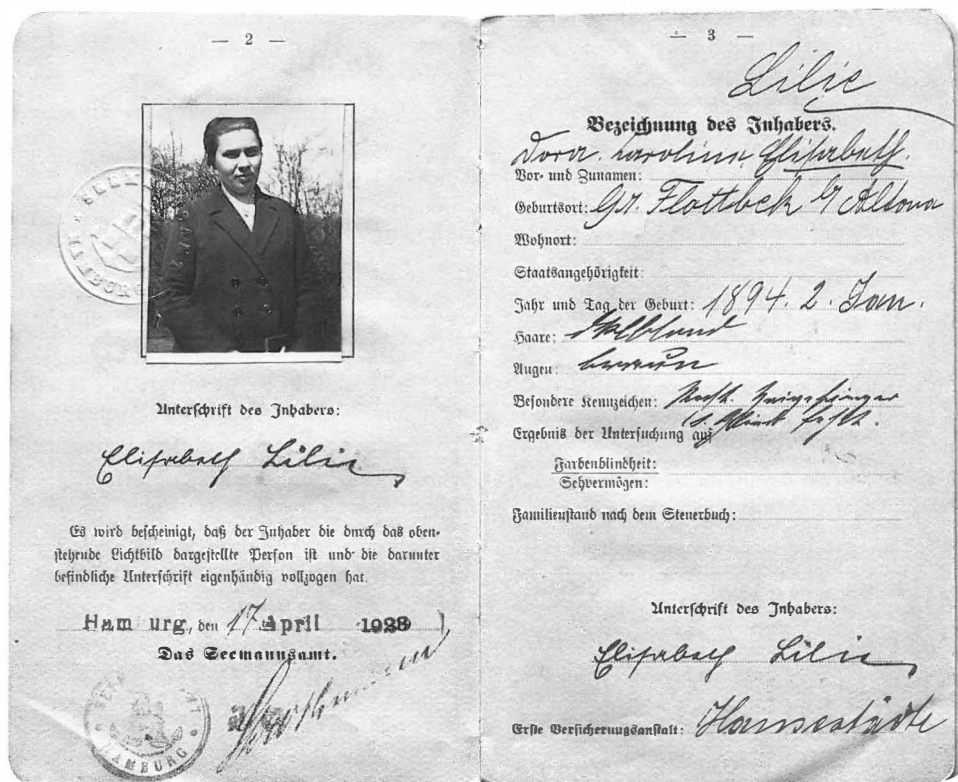 — 2 —
SEEMANNSAMT
HAMBURG
Unterschrift des Inhabers:
Elisabeth Lilie
Es wird bescheinigt, daß der Inhaber die durch das oben-
stehende Lichtbild dargestellte Person ist und die darunter
befindliche Unterschrift eigenhändig vollzogen hat.
Ham urg, den 17 April 1928
Das Seemannsamt.
HAMBURG
— 3 —
Lilie
Bezeichnung des Inhabers.
Dora. Caroline Elisabeth.
Vor- und Zunamen:
Geburtsort: Gr. Flottbek b/ Altona
Wohnort:
Staatsangehörigkeit:
Jahr und Tag der Geburt: 1894. 2. Jan.
Haare:
Augen: braun
Besondere Kennzeichen: Recht. Zeigefinger
1. Glied fehlt.
Ergebnis der Untersuchung auf
Farbenblindheit:
Sehvermögen:
Familienstand nach dem Steuerbuch:
Unterschrift des Inhabers:
Elisabeth Lilie
Erste Versicherungsanstalt: Hansestädte